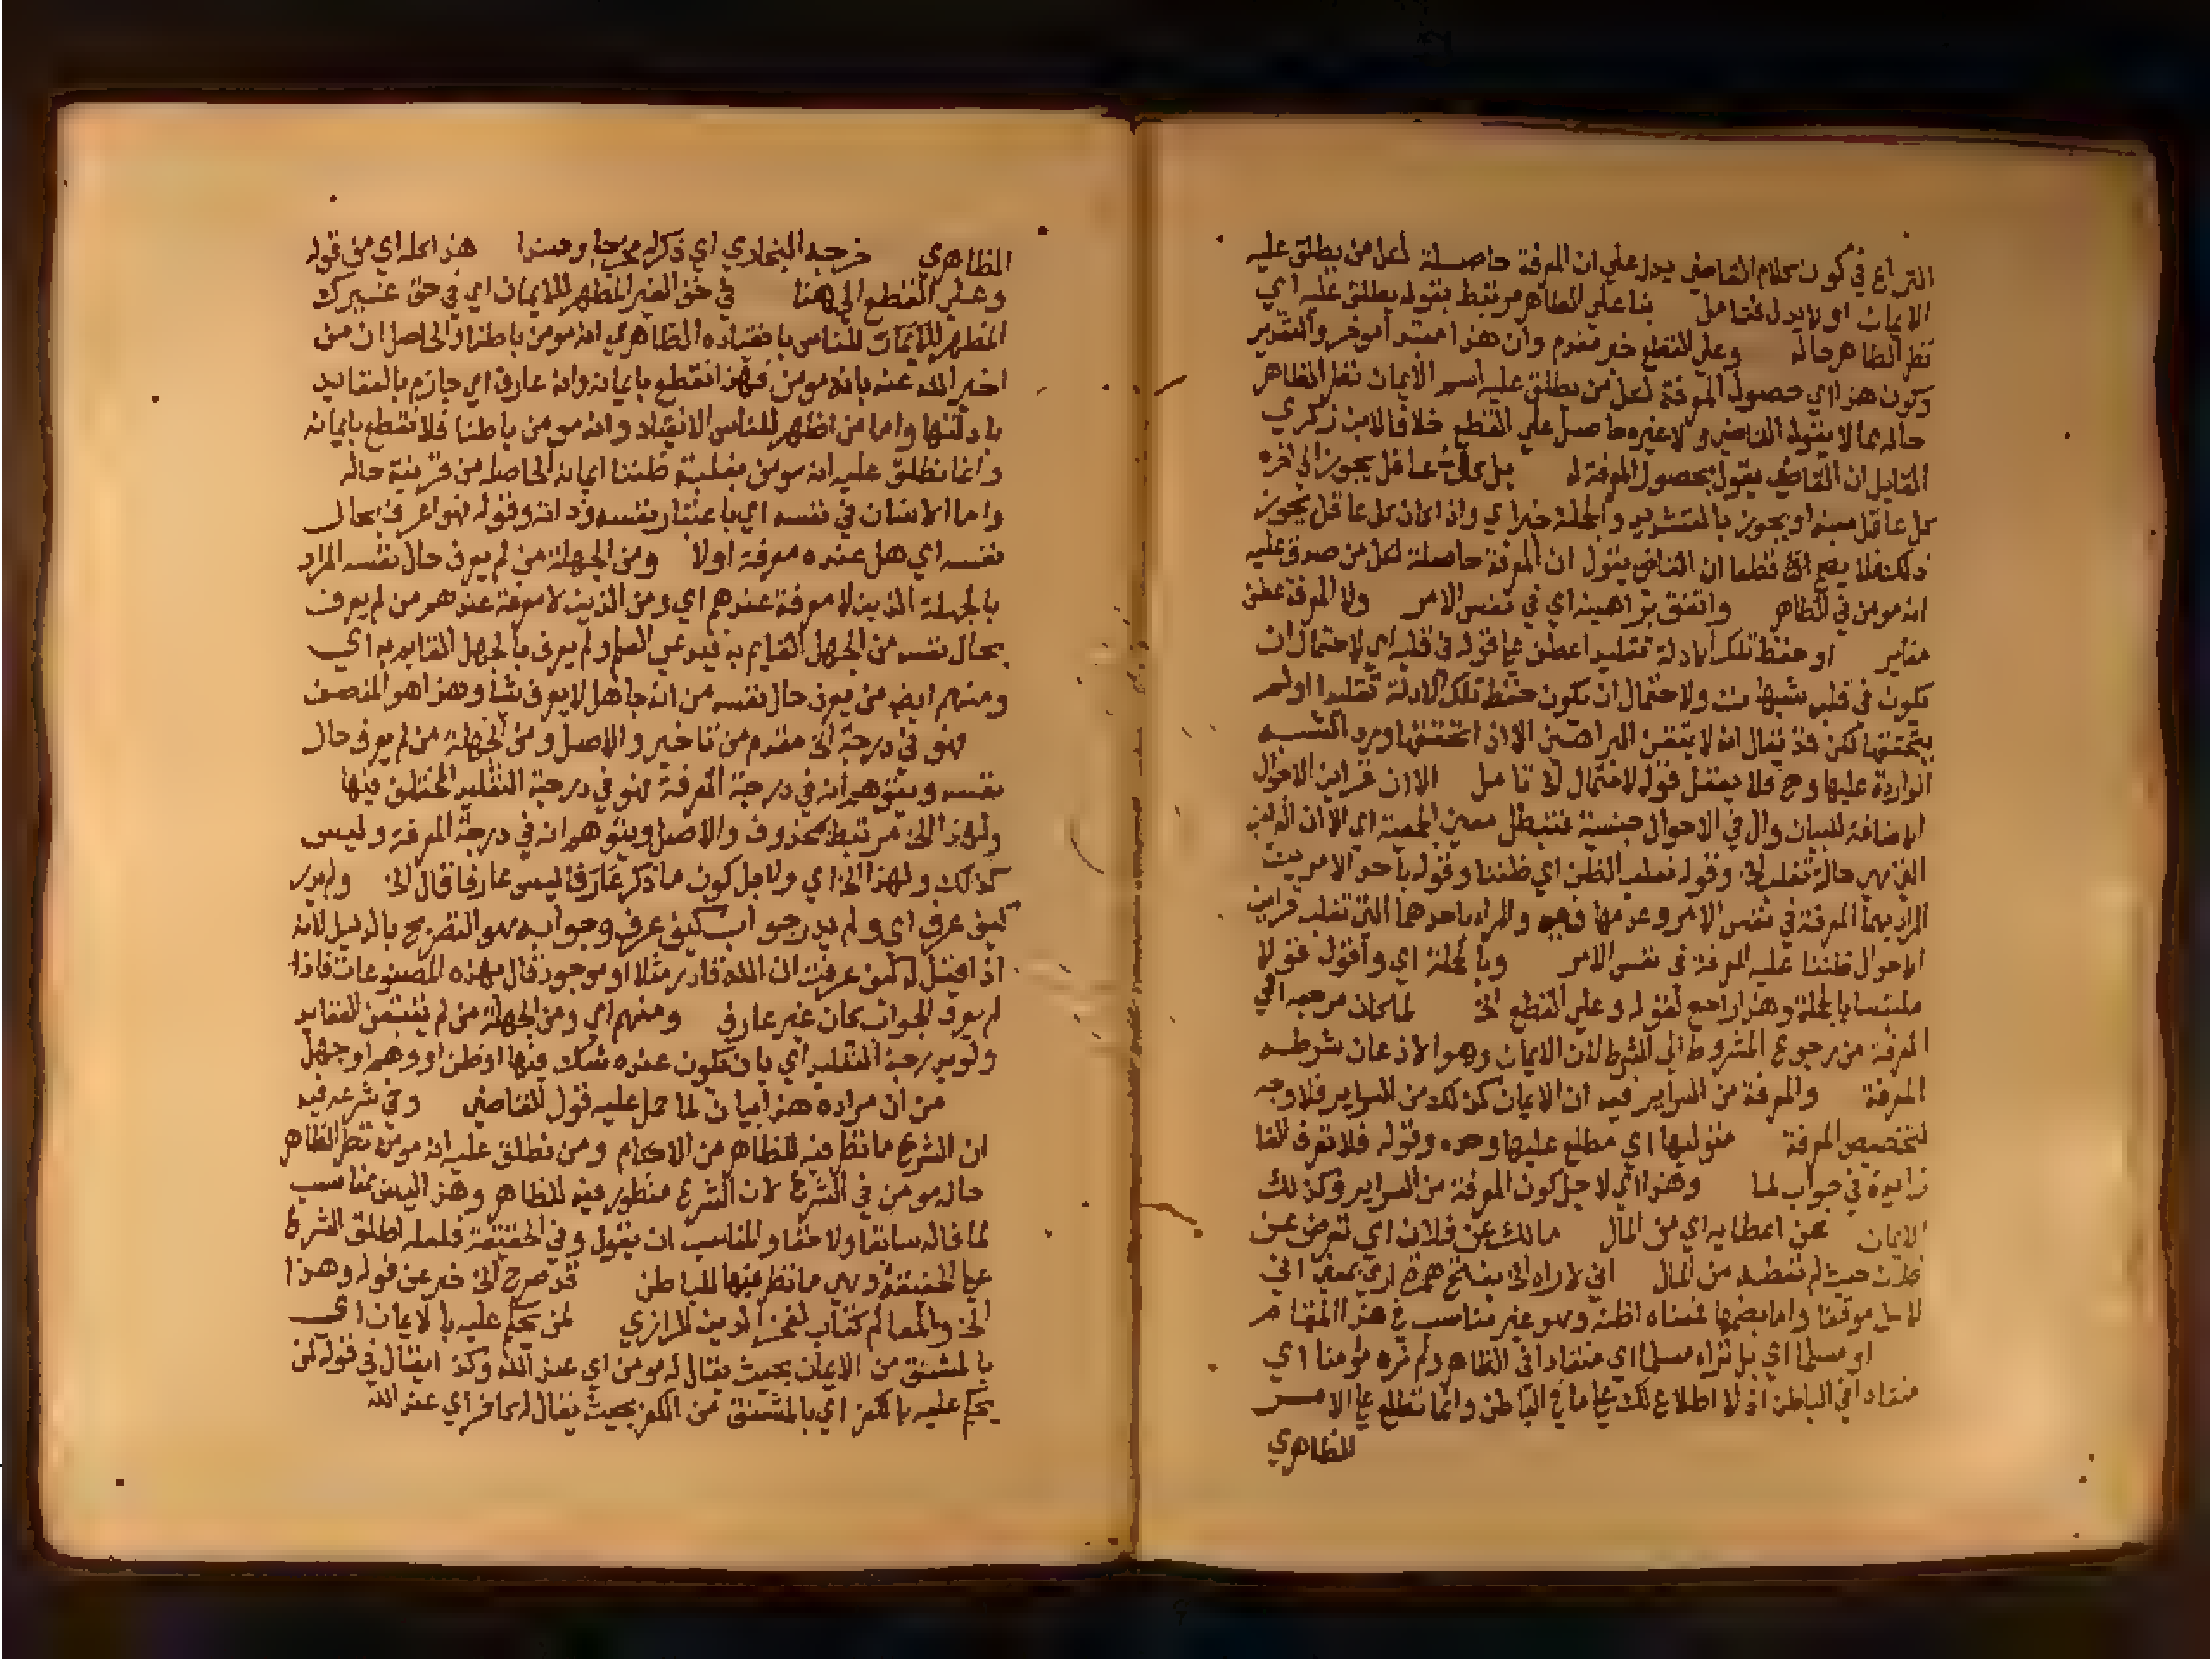 النزاع في كون كلام القاضي يدل على ان المعرفة حاصلة لكل من يطلق عليه
الايمان او لا يدل فتامل بنا على الظاهر مرتبط بقوله يطلق عليه اي
نظر الظاهر حاله وعلي القطع خبر مقدم وان هذا مبتدا موخر والتقدير
وكون هذا اي حصول المعرفة لكل من يطلق عليه اسم الايمان نظر الظاهر
حاله مما لا يقوله القاضي ولا غيره حاصل علي القطع خلافا لابن زكري
القايل ان القاضي يقول بحصول المعرفة له بل كان عاقل يجوز الي اخره
كل عاقل مبتدا ويجوز بالتشديد والجملة خبر اي واذا كان كل عاقل يجوز
ذلك فلا يصح قطعا ان القاضي يقول ان المعرفة حاصلة لكل من صدق عليه
انه مومن في الظاهر واتفق براهينه اي في نفس الامر ولا المعرفة عطف
مغاير او حفظ تلك الادلة تقليدا عطف على قوله في قلبه اي لاحتمال ان
يكون في قلبه شبهات ولاحتمال ان تكون حفظ تلك الادلة تقليدا ولم
يتحققها لكن قد يقال انه لا يتقن البراهين الا اذا تحققها ورد الشبه
الواردة عليها وح فلا يعقل قوله لاحتمال الخ تامل الا ان قراين الاحوال
الاضافة للبيان وال في الاحوال جنسية فتبطل معني الجمعية اي الا ان القراين
التي هي حالة تغلب الخ وقوله تغلب الظن اي ظننا وقوله باحد الامرين
المراد بهما المعرفة في نفس الامر وعدمها والمراد باحدهما التي تغلب قراين
الاحوال ظننا عليه المعرفة في نفس الامر وبالجملة اي واقول قولا
ملتبسا بالجملة وهذا راجع لقوله وعلي القطع الخ لما كان مرجعه الي
المعرفة من رجوع المشروط الي الشرط لان الايمان وهو الاذعان شرطه
المعرفة والمعرفة من السراير فيه ان الايمان كذلك من السراير فلا وجه
لتخصيص المعرفة متوليها اي مطلع عليها وحده وقوله فلا تعرف الفا
زايدة في جواب لما وهذا اي لاجل كون المعرفة من السراير وكذلك
الايمان عن اعطايه اي من المال مالك عن فلان اي تعرض عن
فلان حيث لم تعطه من المال اني لاراه الخ بفتح همزة اري بمعني اني
لاعلمه موقنا واما بضمها فمعناه اظنه وهو غير مناسب في هذا المقام
او مسلما اي بل تراه مسلما اي منقادا في الظاهر ولم تره مومنا اي
منقادا في الباطن اذ لا اطلاع لك على ما في الباطن وانما تطلع على الامر
الظاهري
الظاهري خرجه البخاري اي ذكره مخرجا ومسندا هذا كله اي من قوله
وعلي القطع الي هنا في حق الغير المظهر للايمان اي في حق غيرك
المظهر للايمان للناس بانقياده الظاهري انه مومن باطنا والحاصل ان من
اخبر الله عنه بانه مومن فهذا نقطع بايمانه وانه عارف اي جازم بالعقايد
بادلتها واما من اظهر للناس الانقياد وانه مومن باطنا فلا نقطع بايمانه
وانما نطلق عليه انه مومن بغلبة ظننا ايمانه الحاصله من قرينة حاله
واما الانسان في نفسه اي باعتبار نفسه وذاته وقوله فهو اعرف بحال
نفسه اي هل عنده معرفة اولا ومن الجهلة من لم يعرف حال نفسه المراد
بالجهلة الذين لا معرفة عندهم اي ومن الذين لا معرفة عندهم من لم يعرف
بحال نفسه من الجهل القايم به فيدعي العلم ولم يعرف بالجهل القايم به اي
ومنهم ايض من يعرف حال نفسه من انه جاهل لا يعرف شيأ وهذا هو المنصف
فهو في درجة الخ مقدم من تاخير والاصل ومن الجهلة من لم يعرف حال
نفسه ويتوهم انه في درجة المعرفة فهو في درجة التقليد المختلف فيها
ولهذا الخ مرتبط بمحذوف والاصل ويتوهم انه في درجة المعرفة وليس
كذلك ولهذا الخ اي ولاجل كون ما ذكر عارفا ليس عارفا قال الخ ولم يدر
كيف عرف اي ولم يدر جواب كيف عرف وجوابه هو التصريح بالدليل لانه
اذا قيل له كيف عرفت ان الله قادر مثلا او موجود قال بهذه المصنوعات فاذا
لم يعرف الجواب كان غير عارف ومنهم اي ومن الجهلة من لم يتيقن العقايد
ولو بدرجة التقليد اي بان تكون عنده شك فيها او ظن او وهم او جهل
من ان مراده هذا بيان لما حمل عليه قول القاضي وفي شرعه فيه
ان الشرع ما نظر فيه للظاهر من الاحكام ومن نطلق عليه انه مومن نظر الظاهر
حاله مومن في الشرع لان الشرع منظور فيه للظاهر وهذا ليس مناسب
لما قاله سابقا ولاحقا والمناسب ان يقول وفي الحقيقة فلعله اطلق الشرع
على الحقيقة وهي ما نظر فيها للباطن قد صرح الخ خبر عن قوله وهذا
الخ والمعالم كتاب لفخر الدين الرازي لمن يحكم عليه بالايمان اي
بالمشتق من الايمان بحيث يقال له مومن اي عند الله وكذا يقال في قوله لمن
يحكم عليه بالكفر اي بالمشتق من الكفر بحيث يقال له كافر اي عند الله